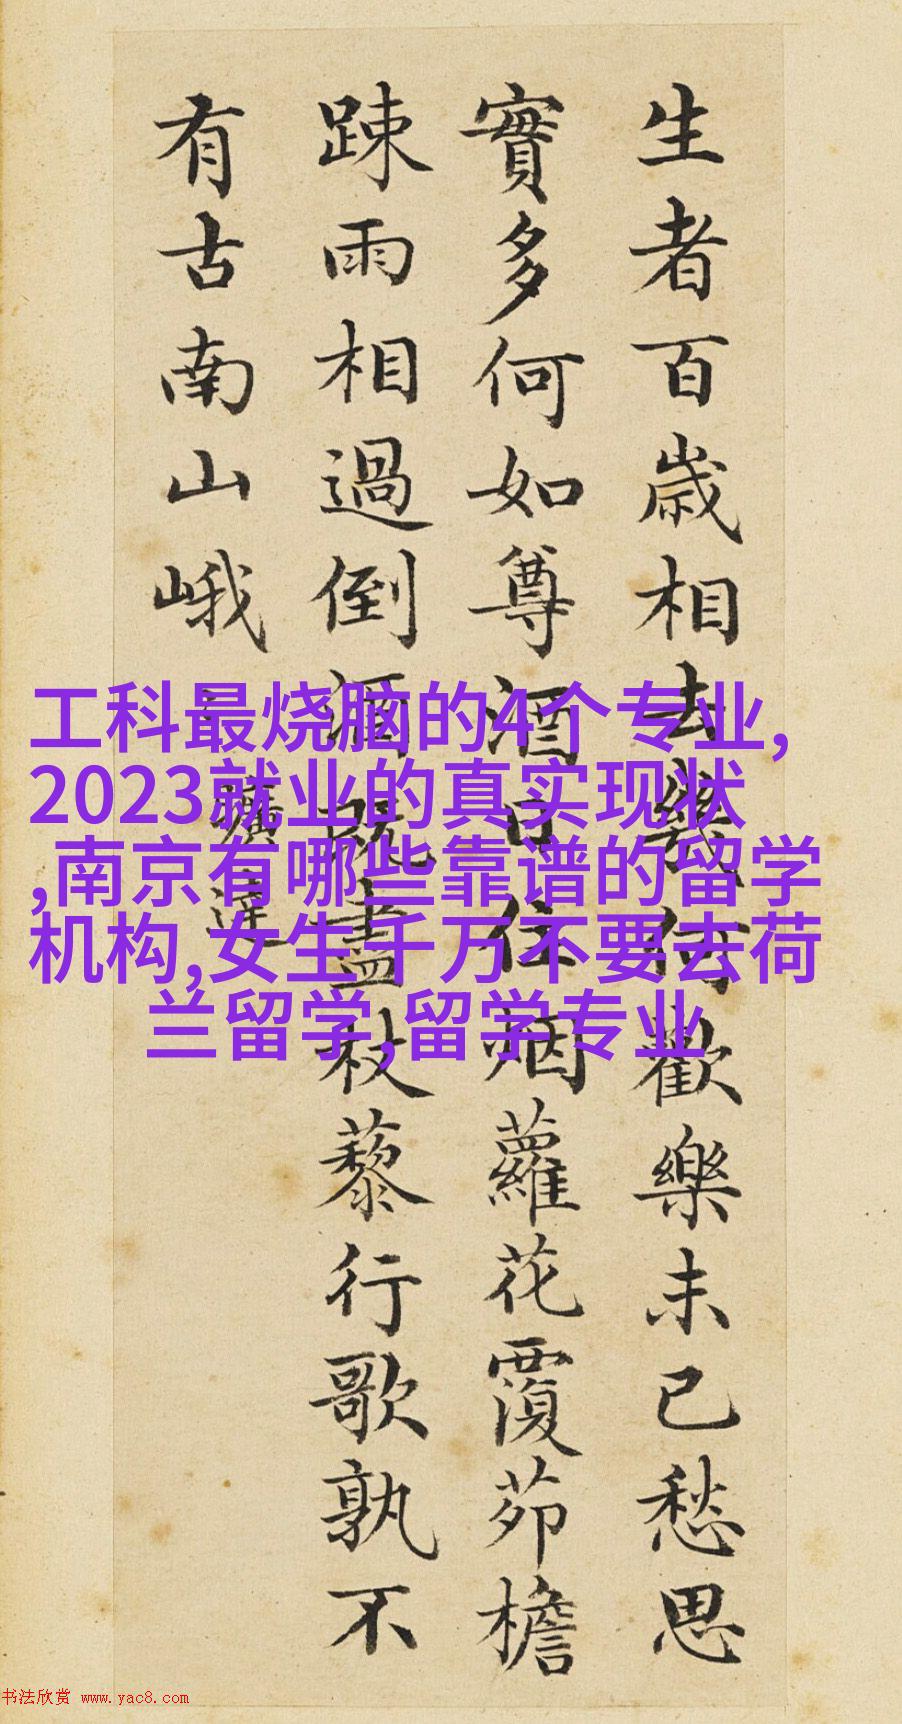 生者百歲相去幾何歡樂未已愁思
實多何如尊酒日往烟蘿花覆茆檐
踈雨相過倒酒既盡杖藜行歌孰不
有古南山峨
曠達
工科最烧脑的4个专业,
2023就业的真实现状
,南京有哪些靠谱的留学
机构,女生千万不要去荷
兰留学,留学专业
书法欣赏 www.yac8.com